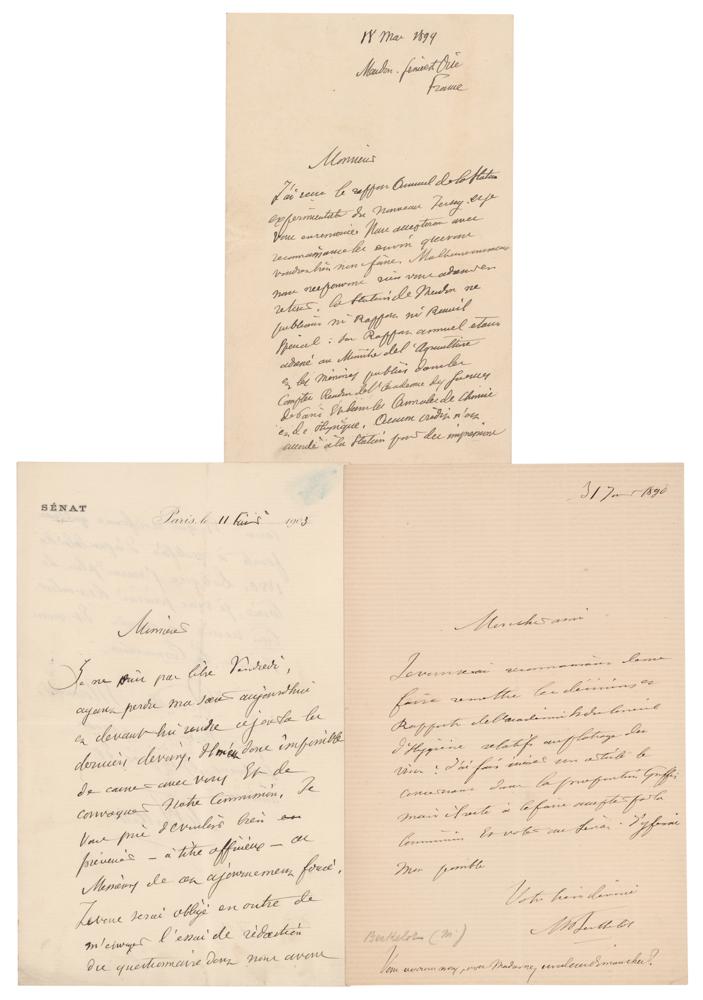 18 Mai 1894
Meudon. Seine et Oise
France
Monsieur
J'ai reçu le rapport Annuel de la Station
expérimentale du nouveau Jersey et je
vous en remercie. Nous accepterons avec
reconnaissance les envois que vous
voudrez bien nous faire. Malheureusement
nous ne pouvons rien vous adresser en
retour. La Station de Meudon ne
publiant ni Rapport ni Recueil
spécial : son Rapport annuel étant
adressé au Ministre de l'Agriculture
et les Mémoires publiés dans les
Comptes Rendus de l'Académie des Sciences
de Paris et dans les Annales de Chimie
et de Physique. Aucun crédit n'est
accordé à la Station pour des impressions
SÉNAT
Paris, le 11 1903
Monsieur
Je ne puis pas être Vendredi,
ayant perdu ma sœur aujourd'hui
et devant lui rendre ce jour là les
derniers devoirs. Il m'est donc impossible
de causer avec vous et de
convoquer Notre Commission. Je
vous prie de vouloir bien
prévenir – à titre officieux – ces
Messieurs de cet ajournement forcé.
Je vous serai obligé en outre de
m'envoyer l'essai de rédaction
du questionnaire dont nous avons
31 1890
Mon cher ami
Je vous serai reconnaissant de me
faire remettre les décisions et
Rapports de l'académie et du Conseil
d'Hygiène relatifs au plâtrage des
vins : J'ai fait insérer un article le
concernant dans la proposition Griffe
mais il reste à la faire accepter par la
commission et voter au Sénat. J'y ferai
mon possible
Votre bien dévoué
M Berthelot
Berthelot (M)